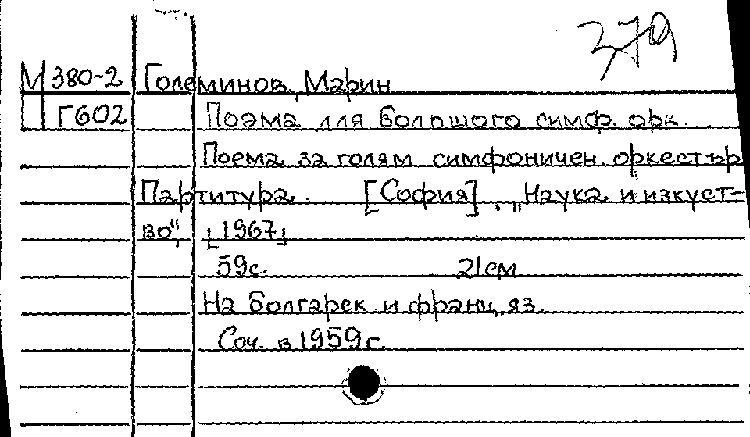 379
М 380-2 Големинов, Марин
Г602 Поэма для большого симф. орк.
Поема за голям симфоничен оркестър
Партитура. [София], „Наука и изкуст-
во“, [1967]
59с. 21см
На болгарск и франц яз.
Соч. в 1959г.